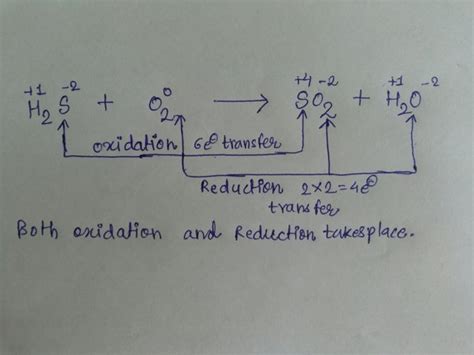 +1 -2 0 +4 -2 +1 -2
H2S + O2 → SO2 + H2O
oxidation 6e⊖ transfer
Reduction 2×2=4e⊖
transfer
Both oxidation and Reduction takesplace.